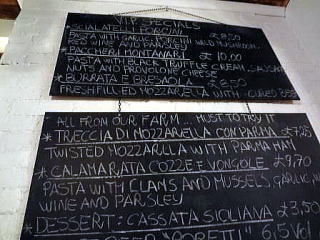 V.I.P SPECIALS
*SCIALATELLI PORCINI £8,50
PASTA WITH GARLIC, PORCINI WILD MUSHROOM,
RED WINE AND PARSLEY
*PACCHERI MONTANARI £10,00
PASTA WITH BLACK TRUFFLE CREAM, SAUSAGE
NUTS AND PROVOLONE CHEESE
*BURRATA E BRESAOLA
FRESH FILLED MOZZARELLA WITH CURED
ALL FROM OUR FARM ... MUST TO TRY IT
*TRECCIA DI MOZZARELLA CON PARMA £7,25
TWISTED MOZZARELLA WITH PARMA HAM
*CALAMARATA COZZE E VONGOLE £9,70
PASTA WITH CLANS AND MUSSELS, GARLIC, W
WINE AND PARSLEY
*DESSERT: CASSATA SICILIANA £3,50
"PORETTI" 6,5 Vol